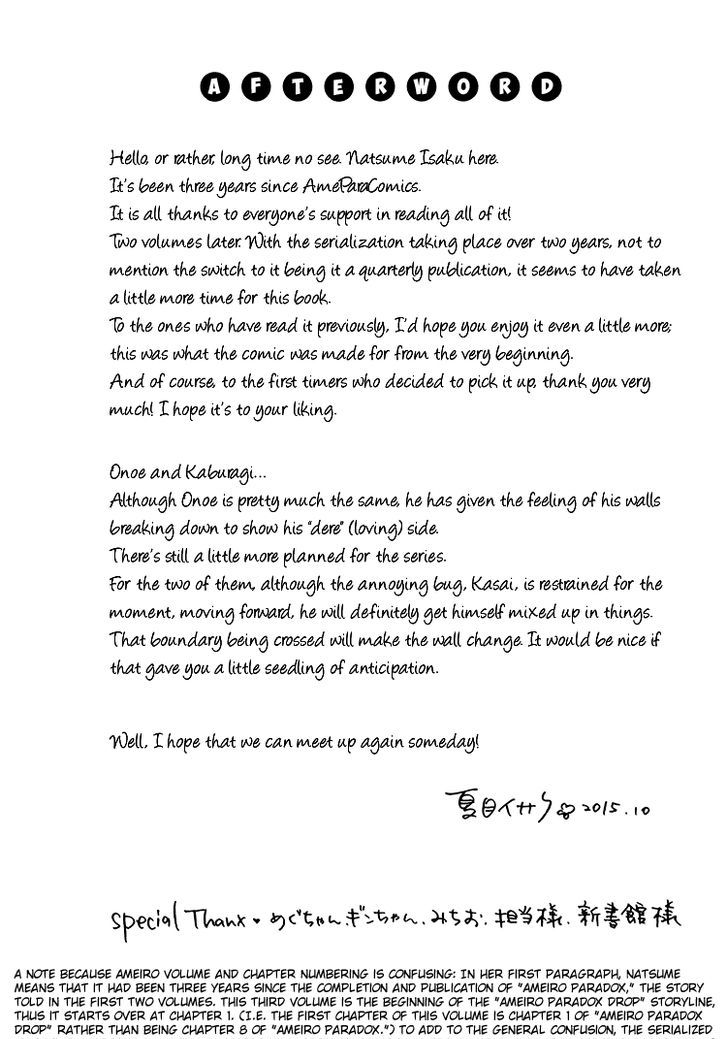 AFTERWORD
Hello, or rather, long time no see. Natsume Isaku here.
It's been three years since AmeParaComics.
It is all thanks to everyone's support in reading all of it!
Two volumes later. With the serialization taking place over two years, not to
mention the switch to it being it a quarterly publication, it seems to have taken
a little more time for this book.
To the ones who have read it previously, I'd hope you enjoy it even a little more;
this was what the comic was made for from the very beginning.
And of course, to the first timers who decided to pick it up, thank you very
much! I hope it's to your liking.
Onoe and Kaburagi...
Although Onoe is pretty much the same, he has given the feeling of his walls
breaking down to show his "dere" (loving) side.
There's still a little more planned for the series.
For the two of them, although the annoying bug, Kasai, is restrained for the
moment, moving forward, he will definitely get himself mixed up in things.
That boundary being crossed will make the wall change. It would be nice if
that gave you a little seedling of anticipation.
Well, I hope that we can meet up again someday!
夏目イサク 2015.10
special Thanx ♥ めぐちゃん.ギンちゃん.みちお.担当様.新書館様
A NOTE BECAUSE AMEIRO VOLUME AND CHAPTER NUMBERING IS CONFUSING: IN HER FIRST PARAGRAPH, NATSUME
MEANS THAT IT HAD BEEN THREE YEARS SINCE THE COMPLETION AND PUBLICATION OF "AMEIRO PARADOX," THE STORY
TOLD IN THE FIRST TWO VOLUMES. THIS THIRD VOLUME IS THE BEGINNING OF THE "AMEIRO PARADOX DROP" STORYLINE,
THUS IT STARTS OVER AT CHAPTER 1. (I.E. THE FIRST CHAPTER OF THIS VOLUME IS CHAPTER 1 OF "AMEIRO PARADOX
DROP" RATHER THAN BEING CHAPTER 8 OF "AMEIRO PARADOX.") TO ADD TO THE GENERAL CONFUSION, THE SERIALIZED